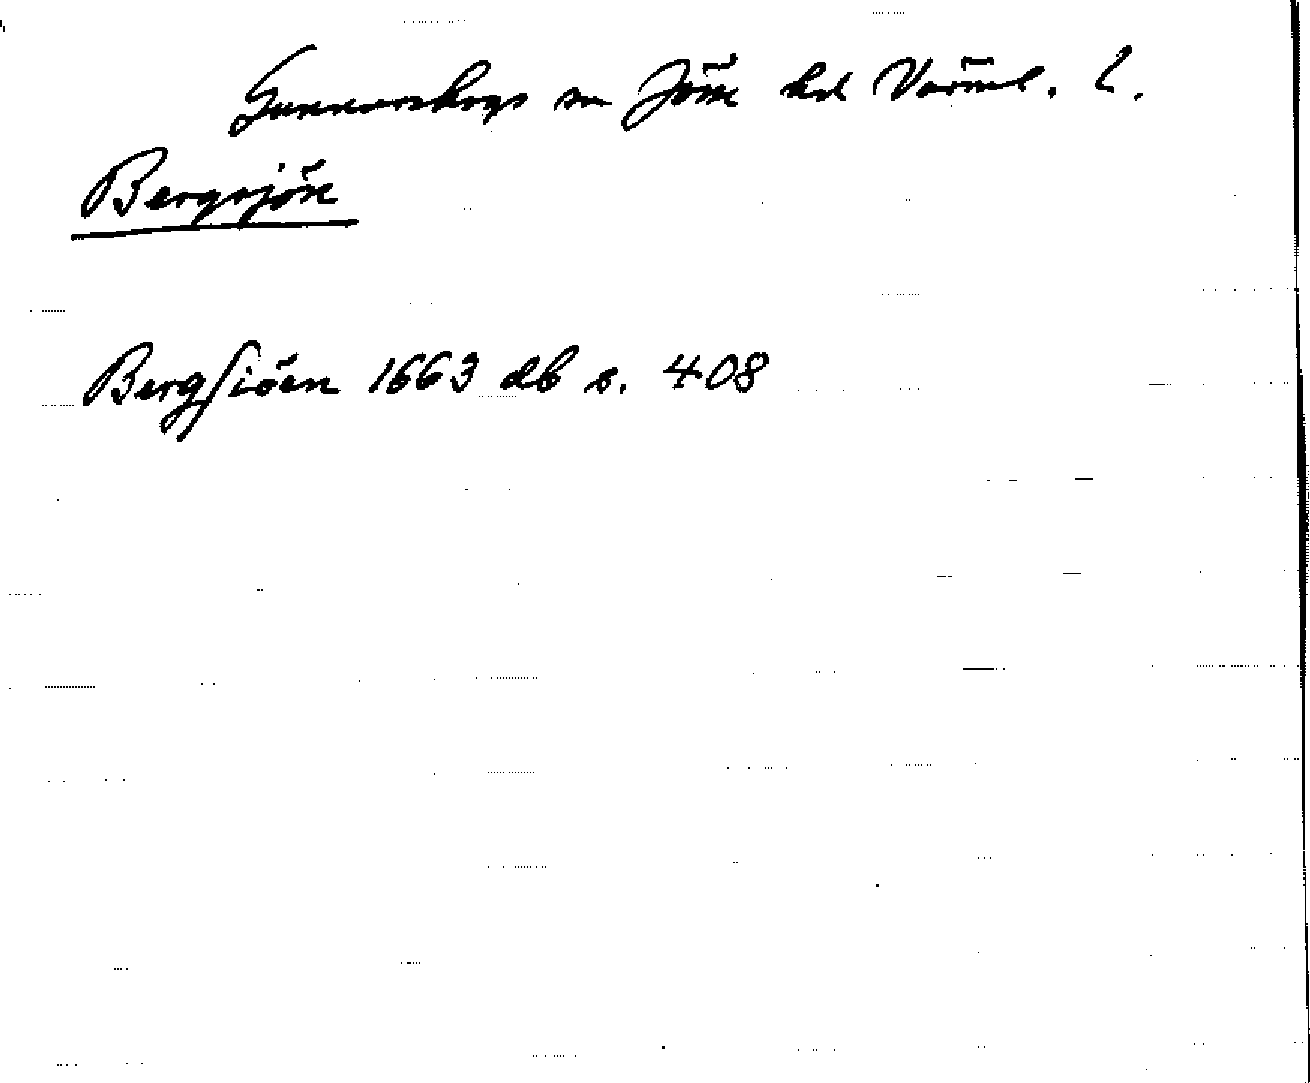 Gunnarskogs sn Jösse hd Värml. l.
Bergsjön
Bergsiöen 1663 db s. 408